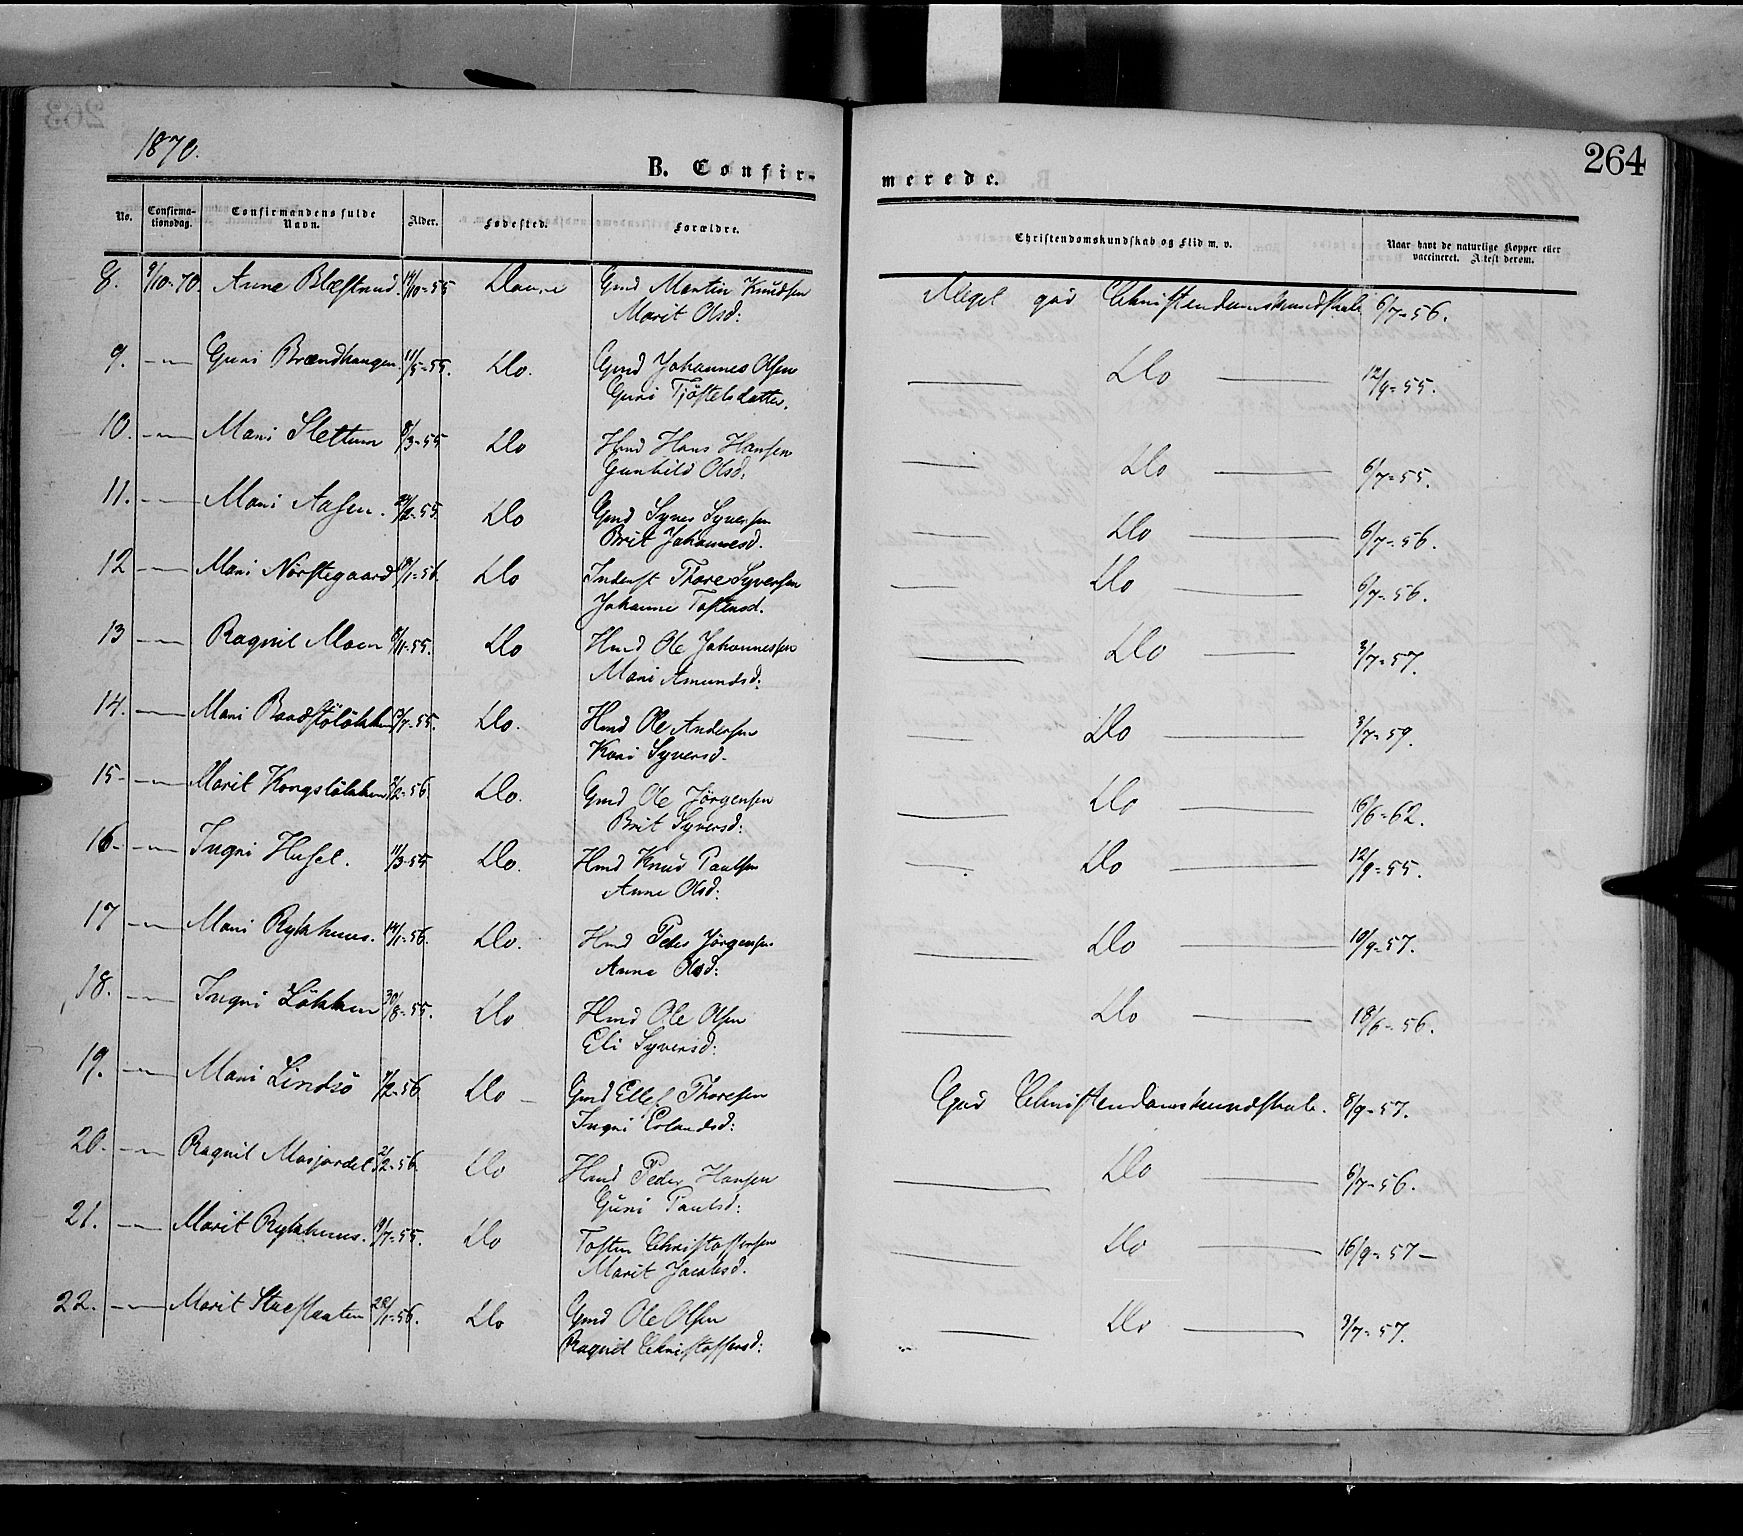 1870.
264
B. Confirmerede.
No. Confirmationsdag. Confirmandens fulde Navn. Alder. Fødested. Forældre. Christendomskundskab og Flid m. v. Naar havt de naturlige Kopper eller vaccineret. Attest derom.
8. 9/10-70. Anne Blæstrud. 14/10-55 Gmd Martin Knudsen Meget god Christendomskundskab 6/7-56.
Marit Olsd:
9. -"- Guri Brændhaugen 11/5-55. Do. Gmd Johannes Olsen Do 12/9-55.
Guri Tjøstelsdatter.
10. -"- Mari Slettum 8/3-55 Do Hmd Hans Hansen Do 6/7-55.
Gunhild Olsd.
11. -"- Mari Aasen. Do Gmd Syver Syversen Do 6/7-56.
Brit Johannesd.
12 -"- Mari Nørstegaard Do Inderst Thore Syversen Do 6/7-56.
Johanne Tostensd.
13 -"- Ragnil Moen Do Hmd Ole Johannessen Do 3/7-57.
Mari Amundsd:
14. -"- Mari Do. Hmd Ole Andersen Do 3/7-59.
Kari Syversd.
15- -"- Marit Kongsløkken Do. Gmd Ole Jörgensen Do 16/6-62.
Brit Syversd:
16- -"- Ingri Husel. 11/3-55 Do. Hmd Knud Paulsen Do 12/9-55.
Anne Olsd:
17 -"- Mari Rykhuus. 14/1-56. Do. Hmd Peder Jörgensen Do 10/9-57.
Anne Olsd:
18. -"- Ingri Løkken 30/8-55. Do Hmd Ole Olsen Do 18/6-56.
Eli Syversd:
19. -"- Mari Lindsö Do Gmd Ellef Thoresen God Christendomskundskab. 8/9-57.
Ingri Erlandsd:
20. -"- Ragnil Mosjordet Do Hmd Peder Hansen Do 6/7-56.
Guri Paulsd:
21. -"- Marit Rykhuus. 19/7-55. Do Tosten Christoffersen Do 16/9-57-
Marit Jacobsd.
22. -"- Marit 28/1-56. Do Gmd Ole Olsen Do 3/7-57.
Ragnil Christoffersd: